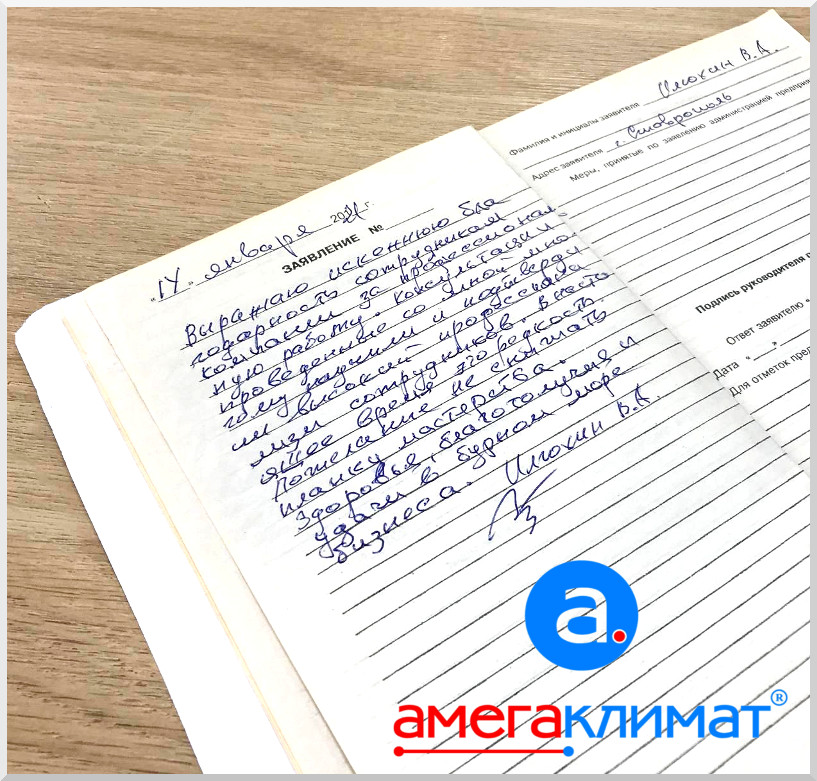 "14" января 2021 г.
ЗАЯВЛЕНИЕ №
Выражаю искеннюю бла
годарность сотрудникам
компании за профессионал
ную работу. Консультации -
проведенные со мной мно
гому научили и подтверди
ли высокий профессиона
лизм сотрудников. В насто
ящее время это редкость.
Пожелание не снижать
планку мастерства.
Здоровья, благополучия и
удачи в бурном море
бизнеса. Илюхин В.А.
Фамилия и инициалы заявителя Илюхин В.А.
Адрес заявителя г. Ставрополь
Меры, принятые по заявлению администрацией
Подпись руководителя
Ответ заявителю "
Дата "__"
Для отметок
а.
амегаклимат®